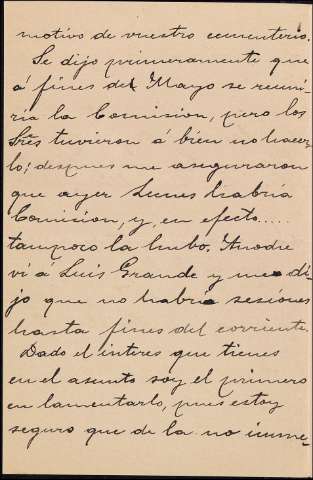 motivo de vuestro cementerio.
Se dijo primeramente que
á fines del Mayo se reuni-
ria la Comision, pero los
Sres tuvieron á bien no hacer-
lo; despues me aseguraron
que ayer Lunes habria
Comision, y, en efecto.....
tampoco la hubo. Anoche
vi á Luis Grande y me di-
jo que no habria sesiones
hasta fines del corriente.
Dado el interes que tienes
en el asunto soy el primero
en lamentarlo, pues estoy
seguro que de la no inme-